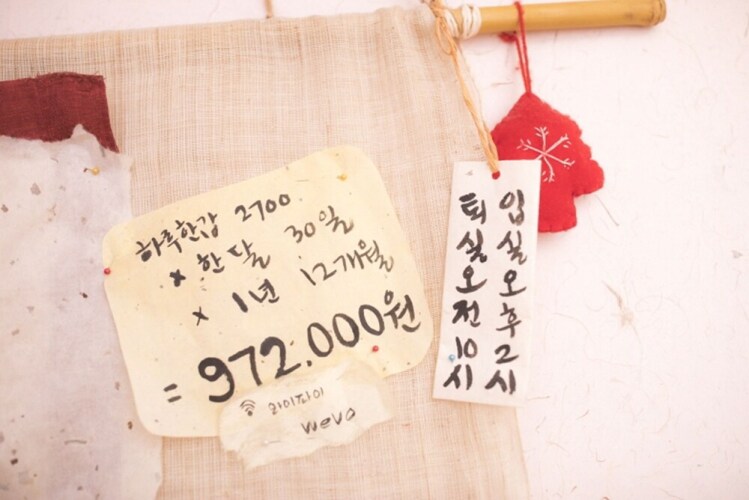 하루한갑 2700
× 한달 30일
× 1년 12개월
= 972.000원
와이파이
wevo
입실오후2시
퇴실오전10시